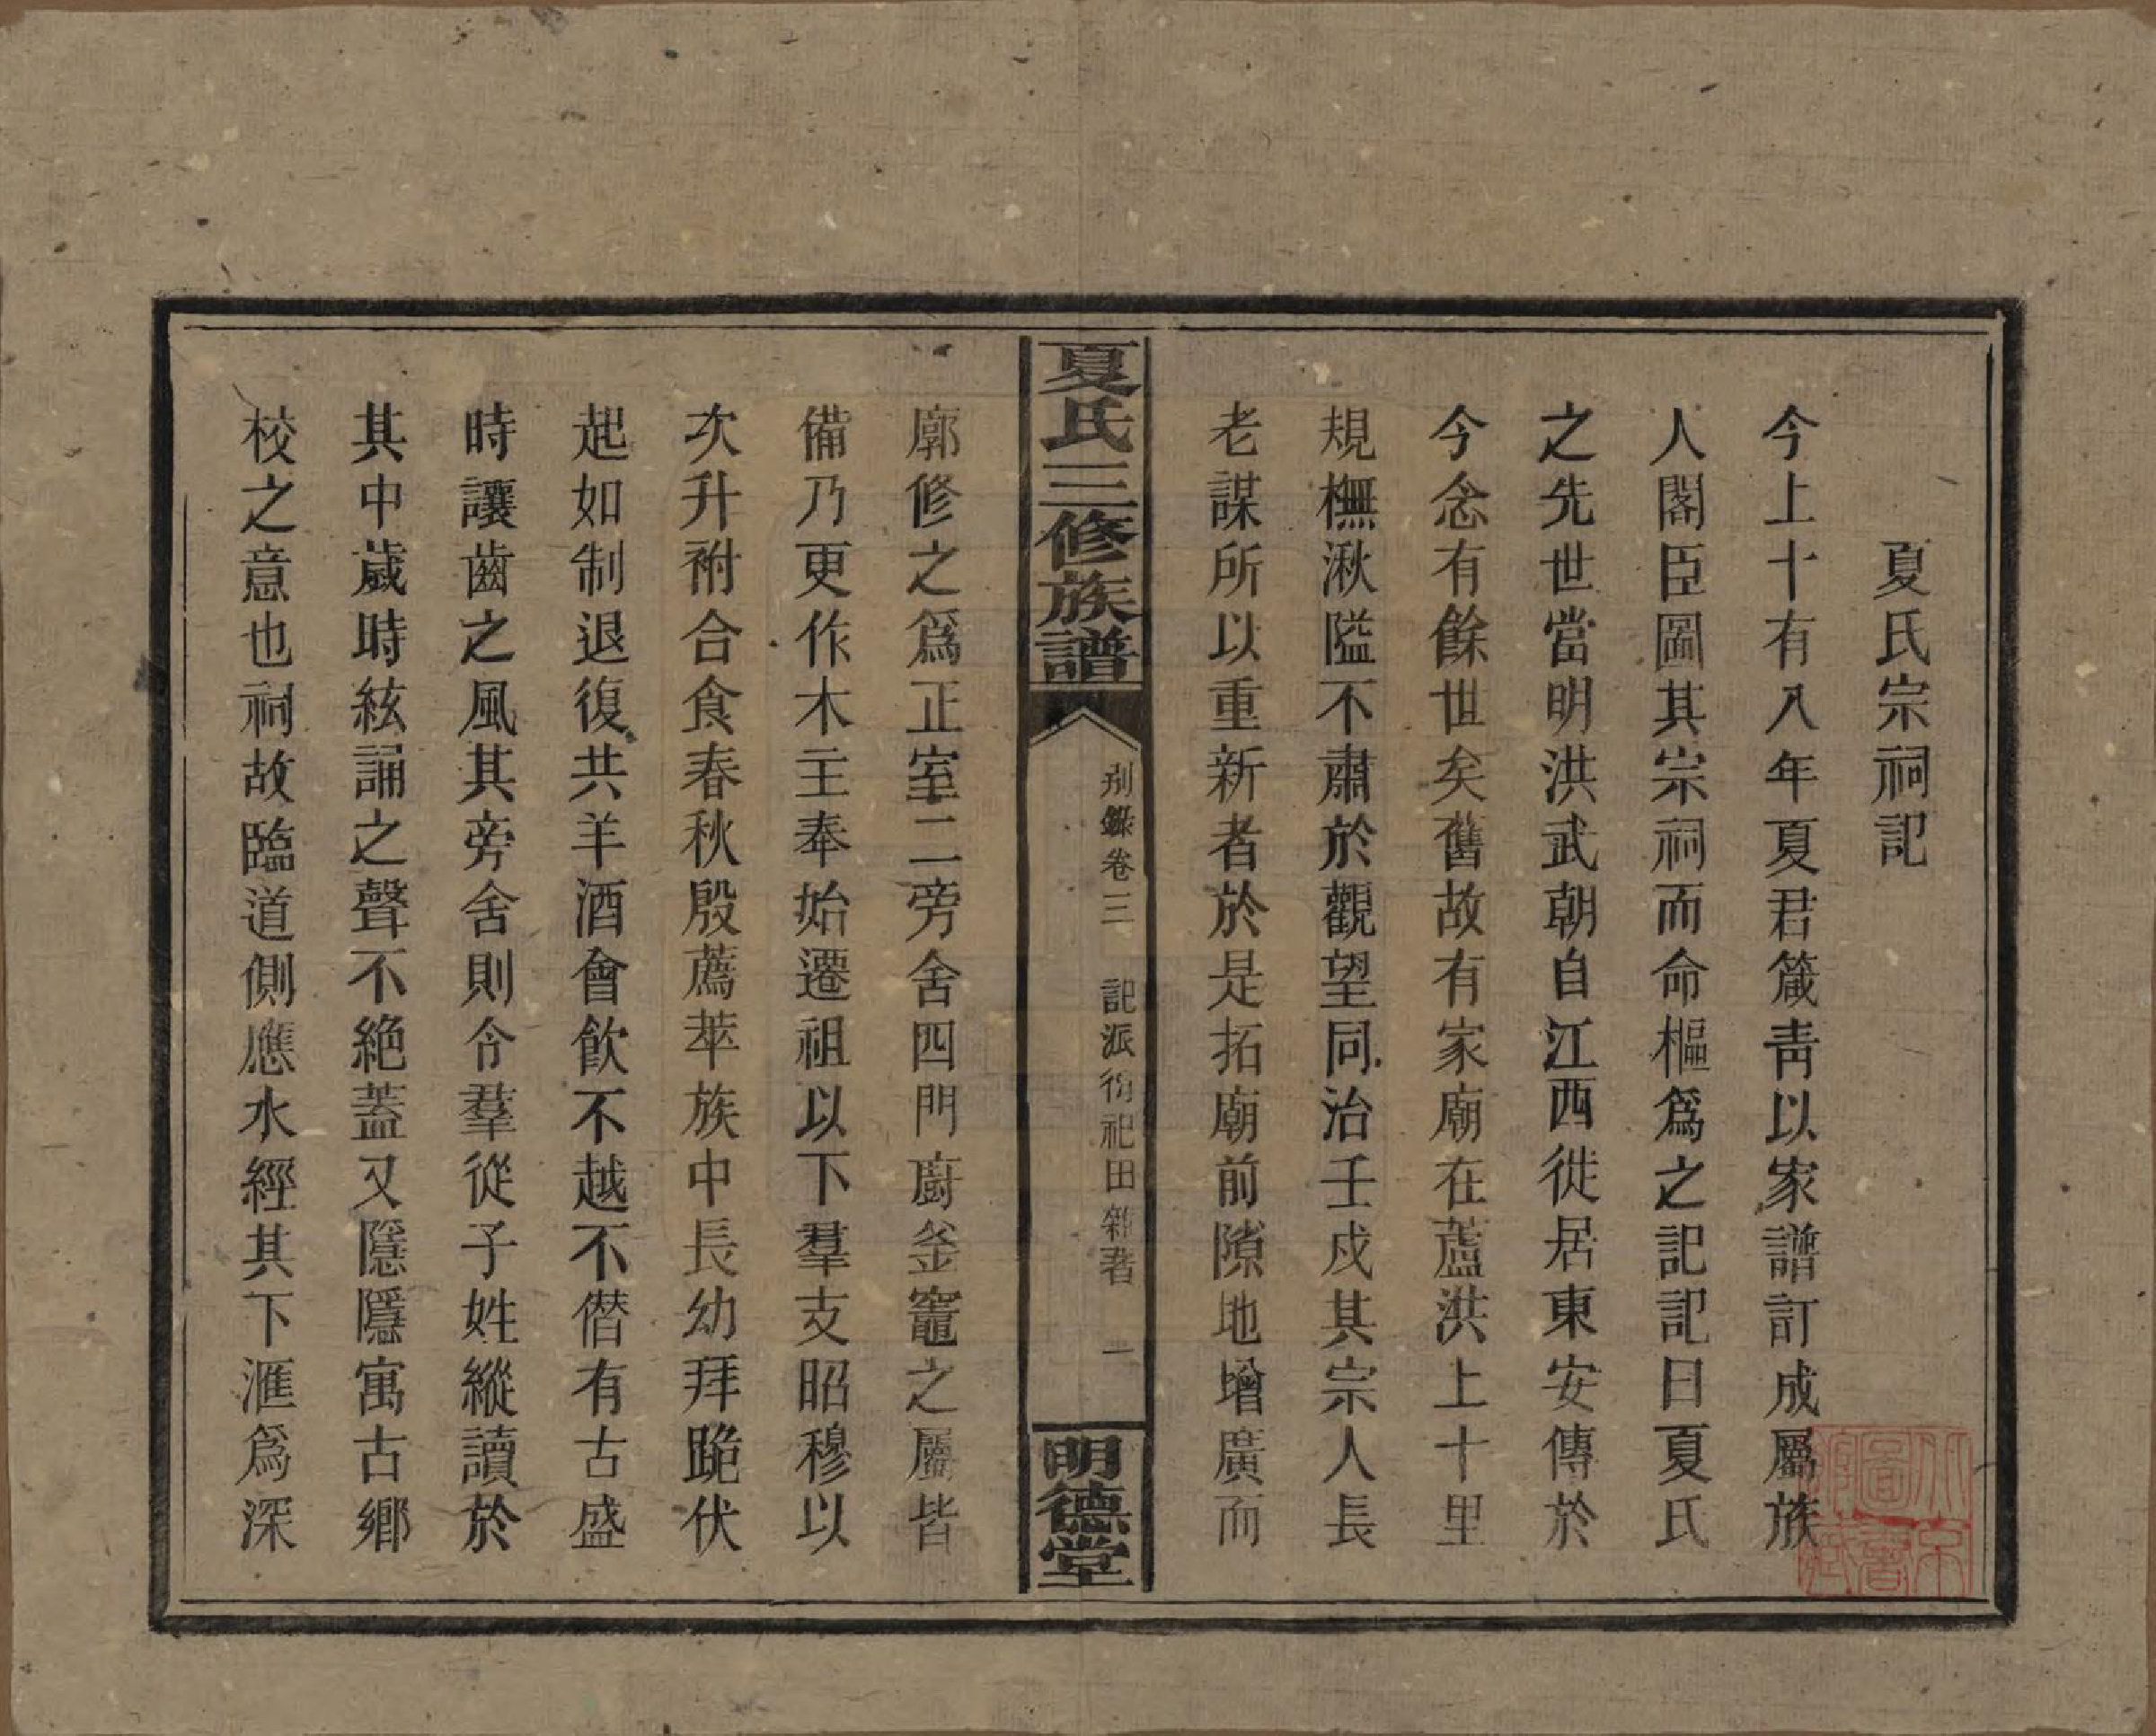 夏氏宗祠記
今上十有八年夏君箴青以家譜訂成屬族
人閣臣圖其宗祠而命樞爲之記記曰夏氏
之先世當明洪武朝自江西徙居東安傳於
今念有餘世矣舊故有家廟在蘆洪上十里
規橅湫隘不肅於觀望同治壬戌其宗人長
老謀所以重新者於是拓廟前隙地增廣而
夏氏三修族譜
别錄卷三 記派衍祀田雜著 一
明德堂
廓修之爲正室二旁舍四門廚釜竈之屬皆
備乃更作木主奉始遷祖以下羣支昭穆以
次升祔合食春秋殷薦萃族中長幼拜跪伏
起如制退復共羊酒會飮不越不僣有古盛
時讓齒之風其旁舍則令羣從子姓縱讀於
其中歲時絃誦之聲不絶蓋又隱隱寓古鄉
校之意也祠故臨道側應水經其下滙爲深
北京圖書館藏